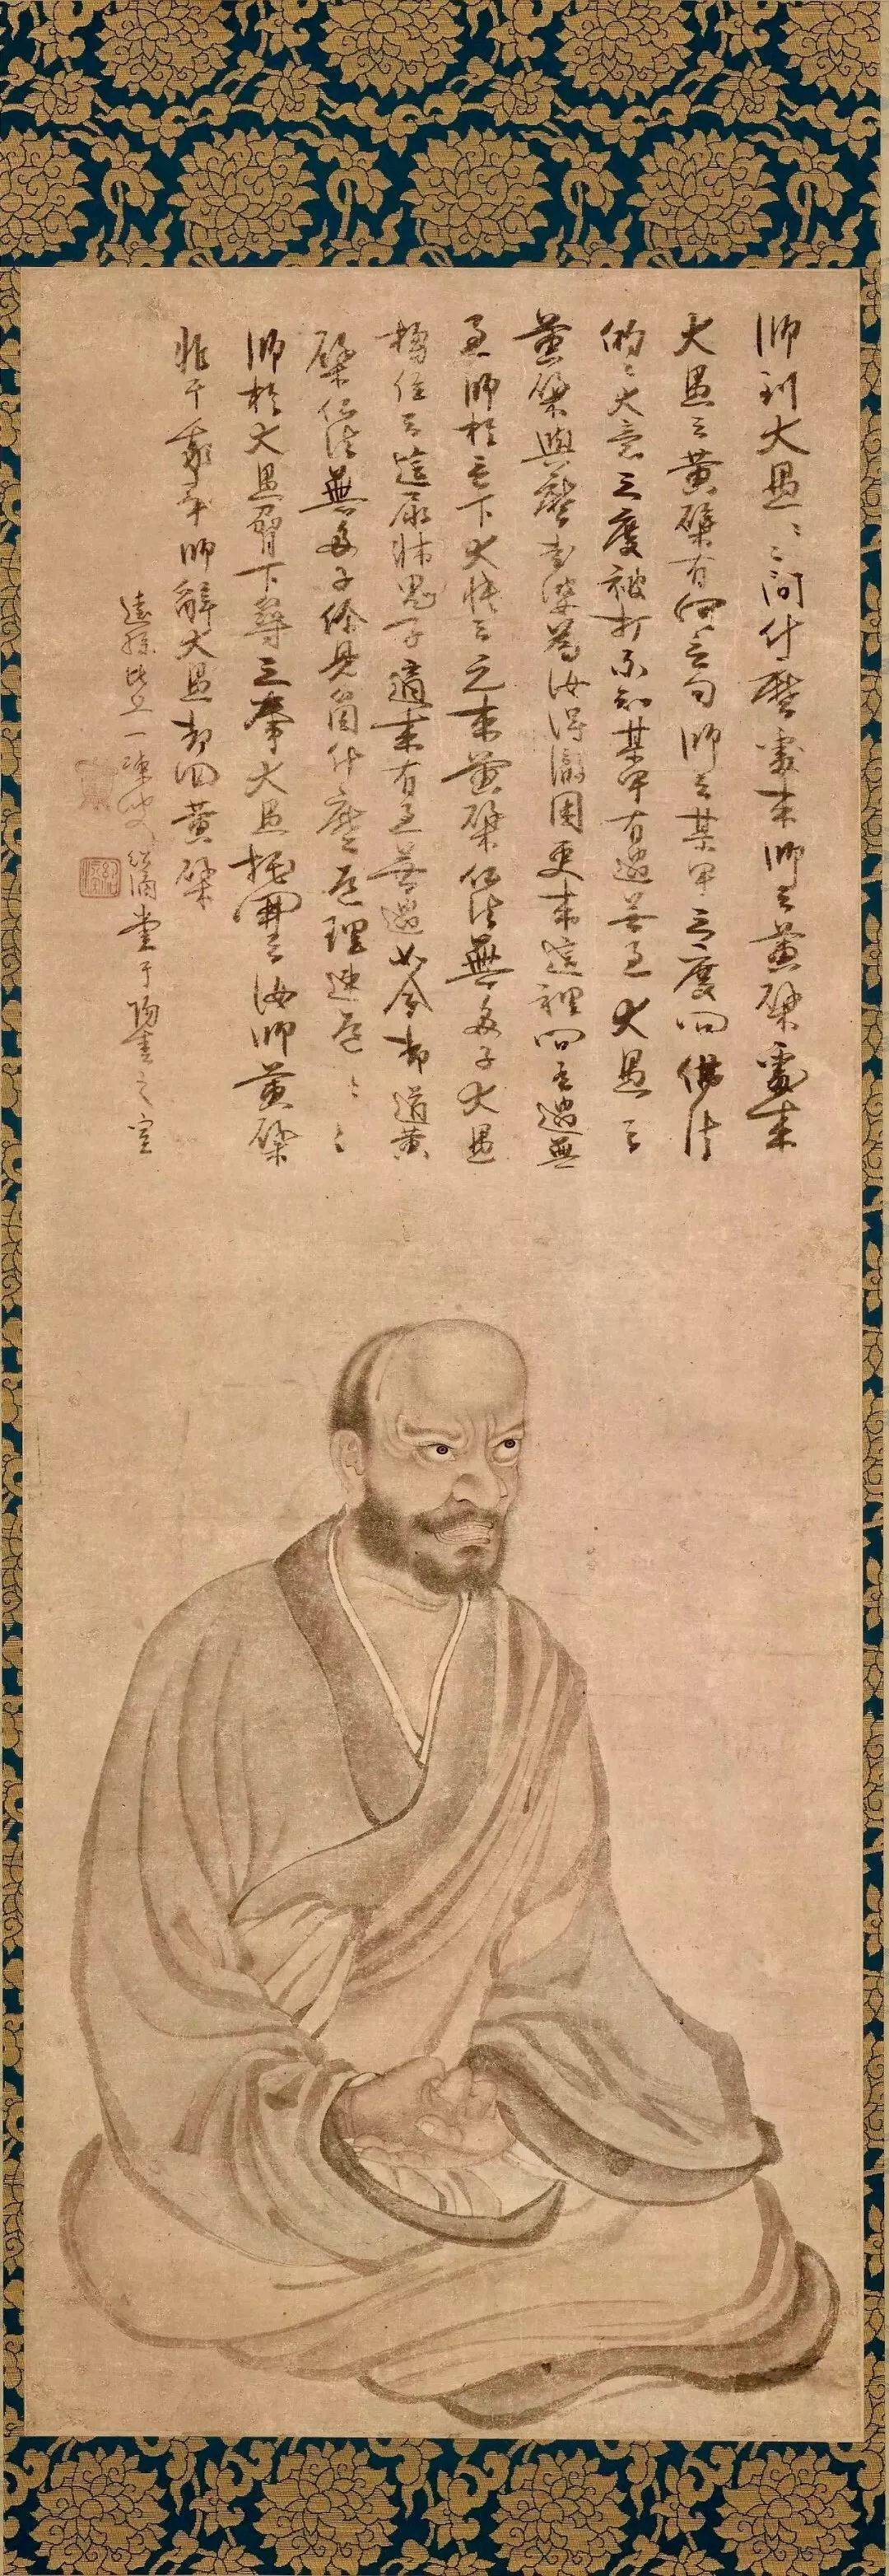 師到大愚〻〻問什麼處來師云黃檗處來
大愚云黃檗有何言句師云某甲三度問佛法
的〻大意三度被打不知某甲有過無過大愚云
黃檗與麼老婆為汝得徹困更來這裡問有過無
過師於言下大悟云元來黃檗仏法無多子大愚
搊住云這尿牀鬼子適來有過無過如今却道黃
檗仏法無多子你見箇什麼道理速道〻〻
師於大愚脅下築三拳大愚托開云汝師黃檗
非干我事師辭大愚却回黃檗
遠孫比丘一凍紹滴書于陽春之室